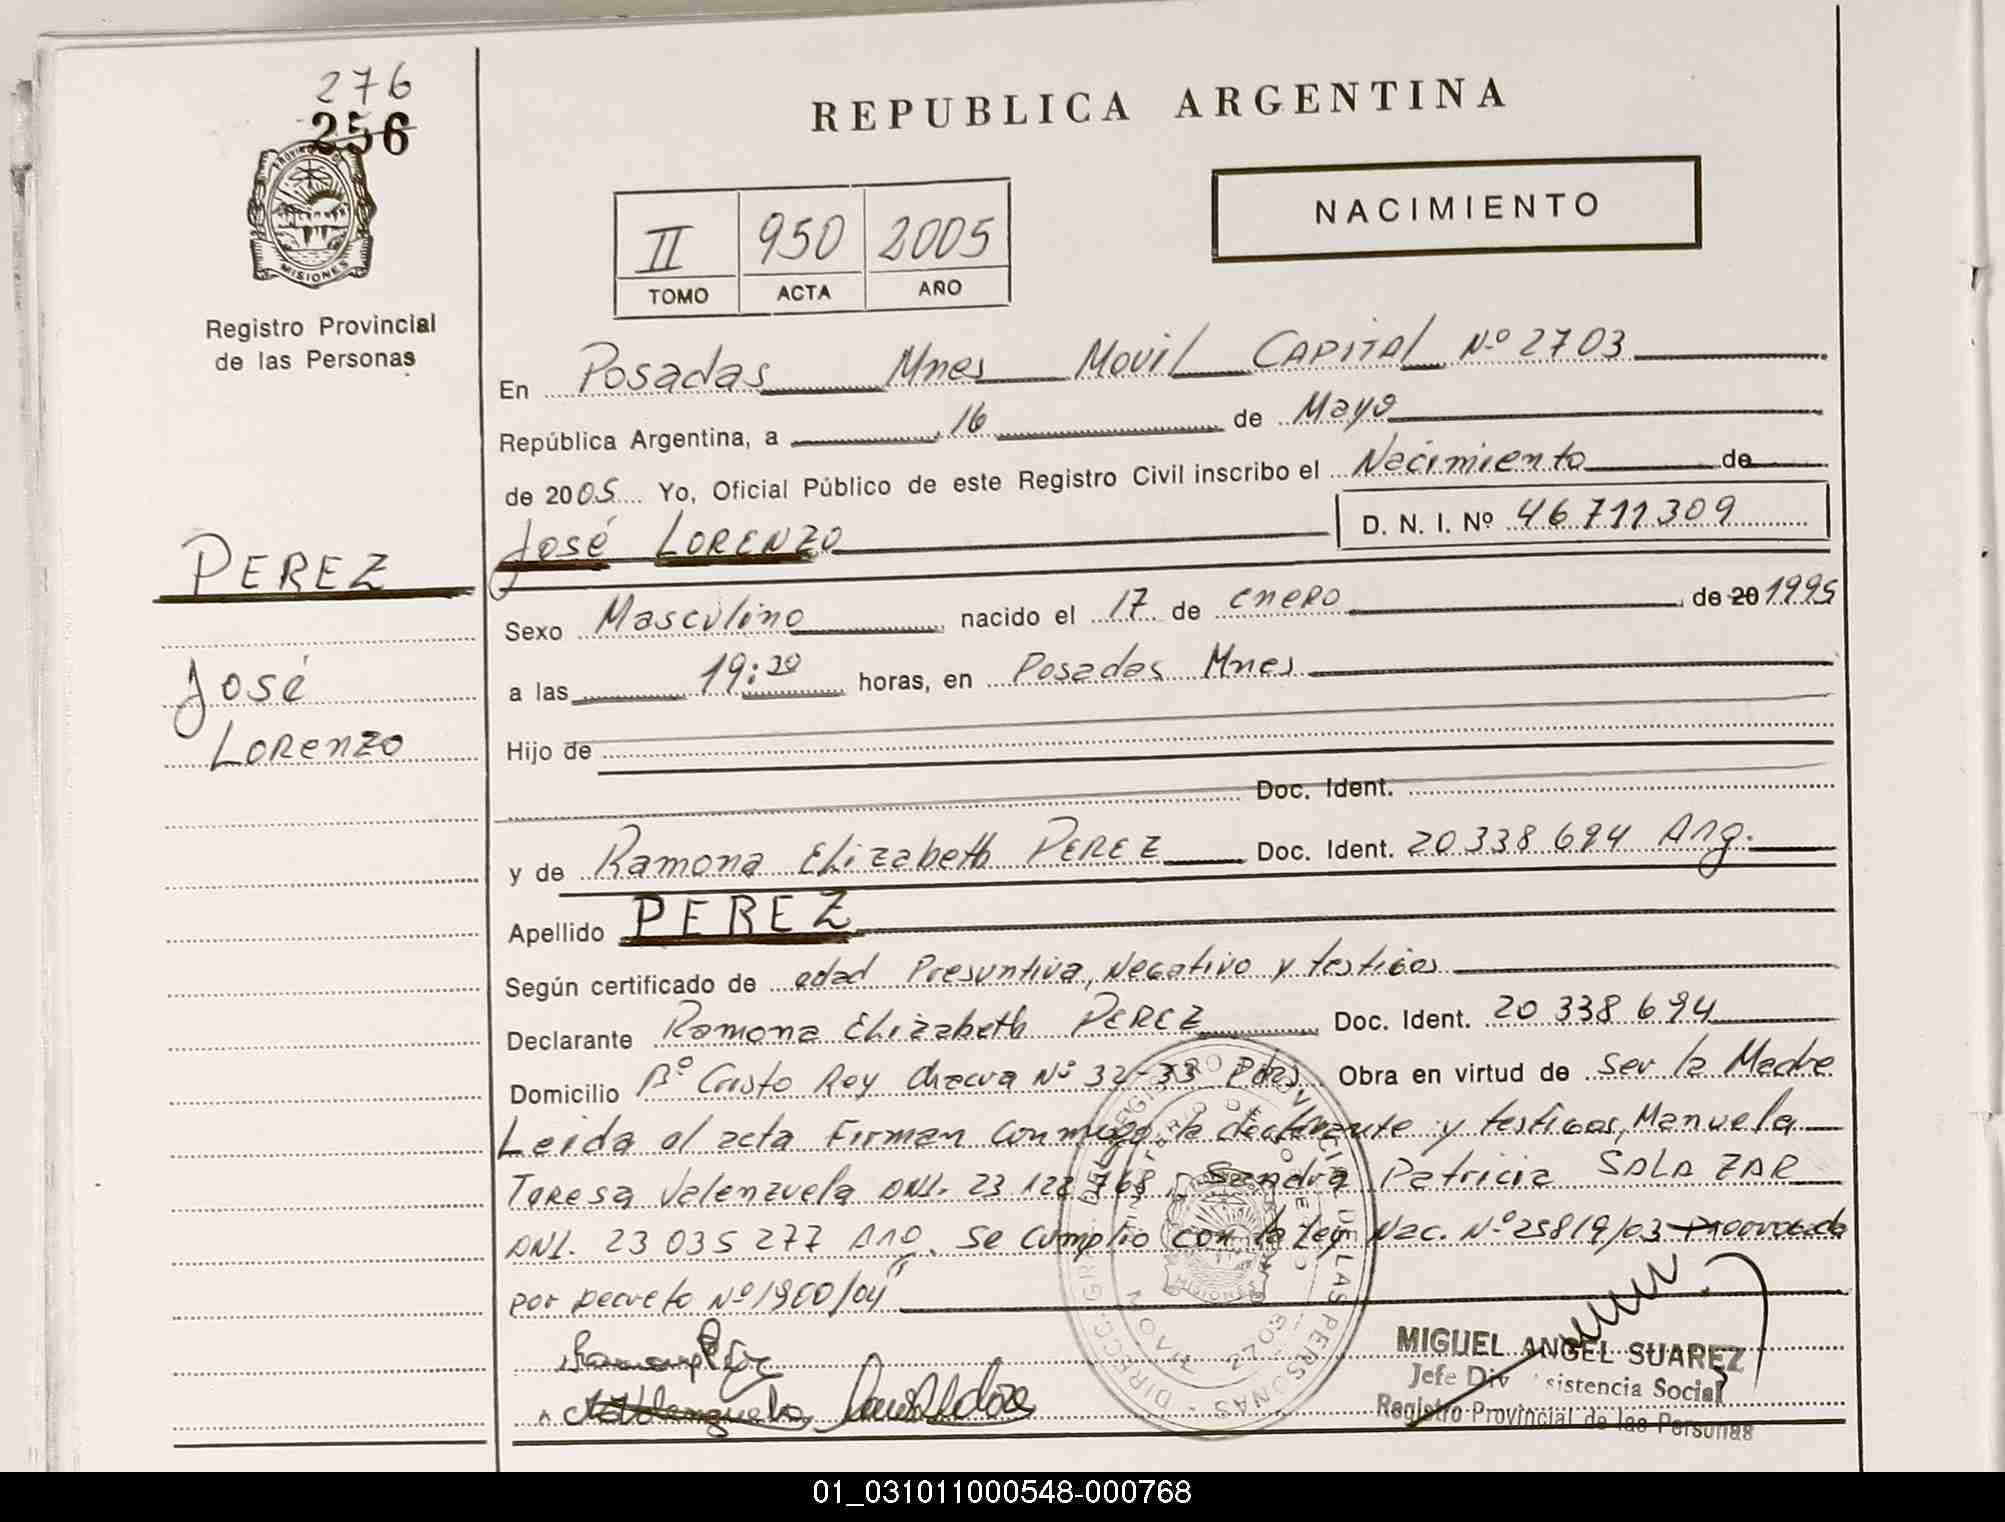 276
256
PROVINCIA DE
MISIONES
Registro Provincial
de las Personas
REPUBLICA ARGENTINA
NACIMIENTO
II 950 2005
TOMO ACTA AÑO
En Posadas Mnes Movil CAPITAL Nº 2703
República Argentina, a 16 de Mayo
de 2005 Yo, Oficial Público de este Registro Civil inscribo el Nacimiento de
José LORENZO D. N. I. Nº 46711309
PEREZ
José
Lorenzo
Sexo Masculino nacido el 17 de enero de 20 1995
a las 19:20 horas, en Posadas Mnes
Hijo de
Doc. Ident.
y de Ramona Elizabeth PEREZ Doc. Ident. 20 338 694 Arg.
Apellido PEREZ
Según certificado de edad Presuntiva, Negativo y testigos
Declarante Ramona Elizabeth PEREZ Doc. Ident. 20 338 694
Domicilio Bº Cristo Rey chacra Nº 32-33 Pdas Obra en virtud de ser la Madre
Leida el acta Firman conmigo la declarante y testigos, Manuela
Teresa Valenzuela DNI. 23 122 768, Sandra Patricia SALAZAR
DNI. 23 035 277 Arg. Se cumplio con la Ley Nac. Nº 25819/03
por Decreto Nº 1900/04
MIGUEL ANGEL SUAREZ
Jefe Div sistencia Social
Registro Provincial de las Personas
01_031011000548-000768